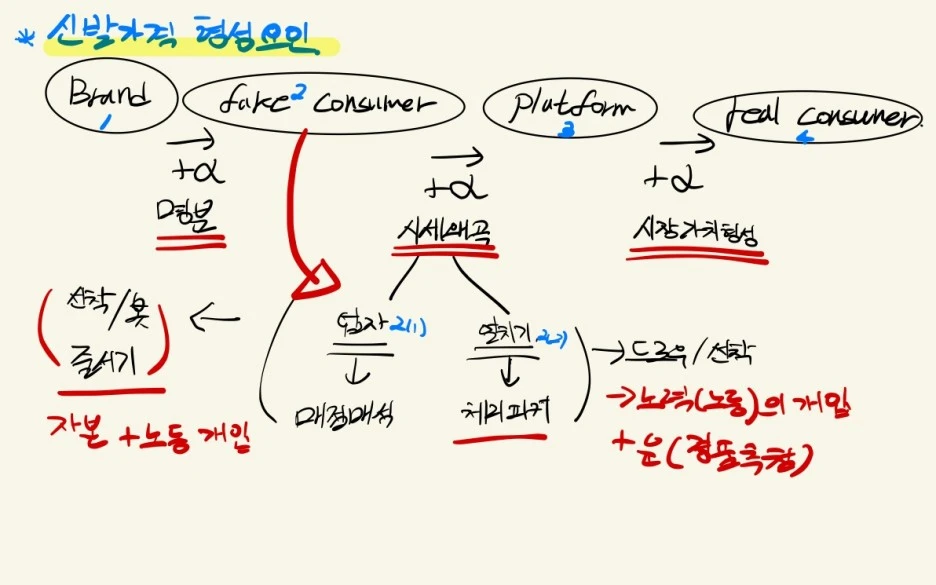 * 신발가격 형성요인
Brand
1
fake consumer
2
Platform
3
real consumer
4
+α
명분
+α
시세왜곡
+α
시장가치형성
선착/봇
줄서기
자본 + 노동 개입
업자 2(1)
매점매석
열치기 2(2)
체리피커
→ 드로우/선착
→ 노력(노동)의 개입
+ 운(경품추첨)